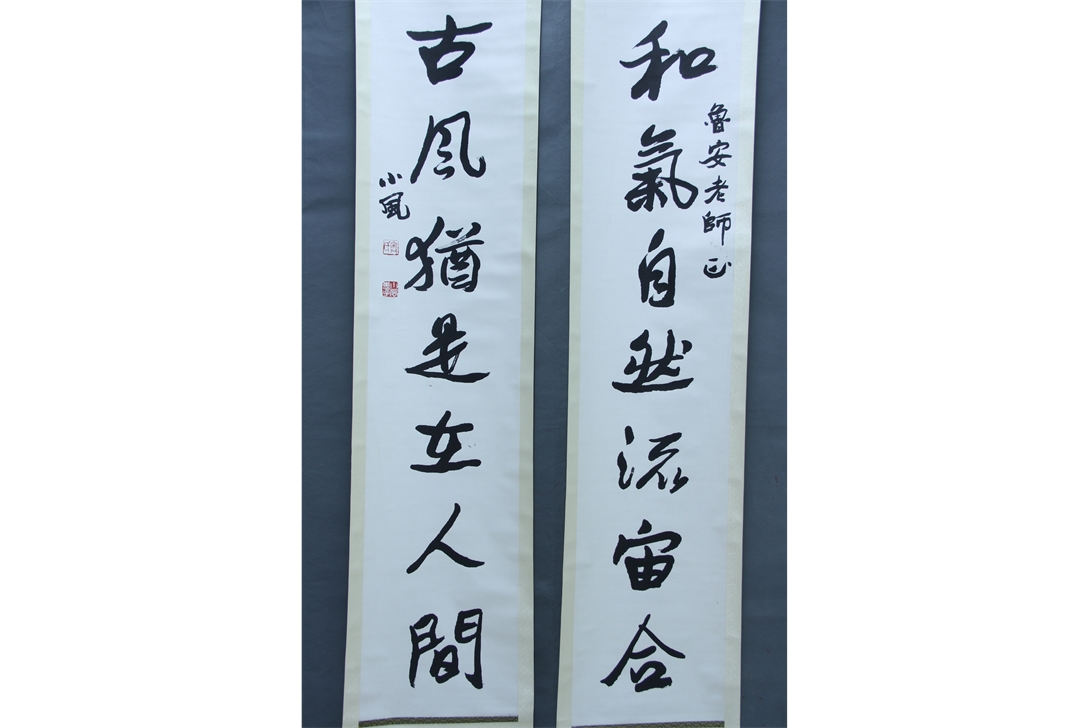 和氣自然流宙合
魯安老師正
古风猶是在人間
小風